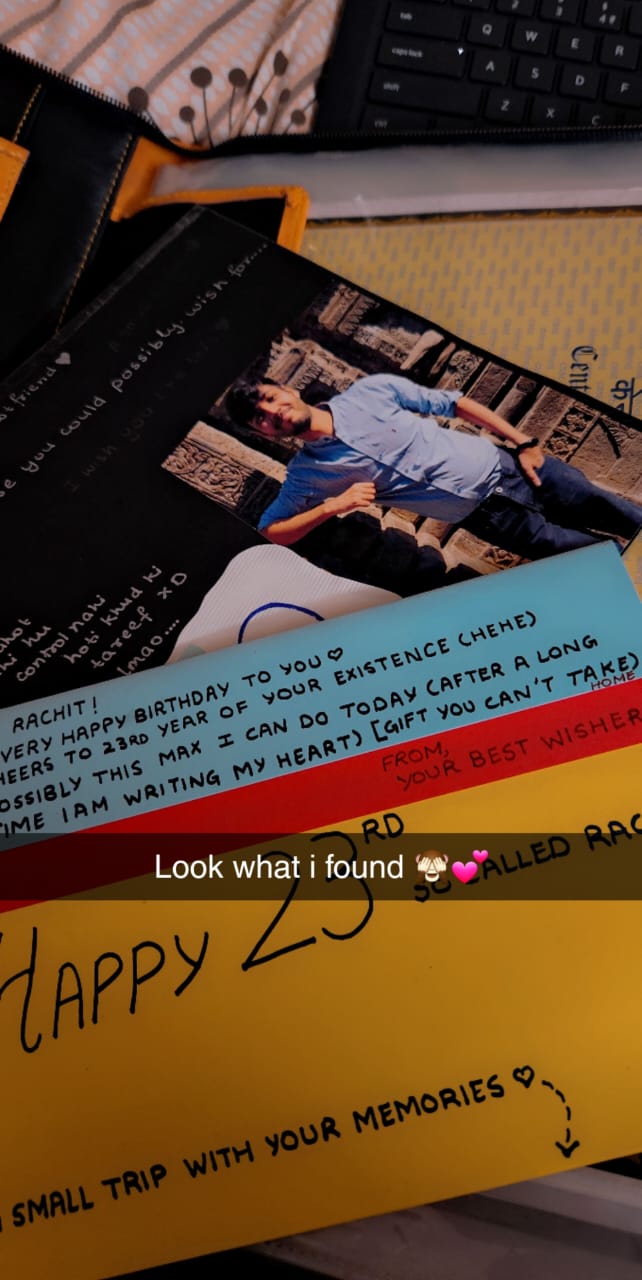 tab
Q W E R
caps lock A S D F
shift Z X C
ctrl
Cent
के
se you could possibly wish for....
I wish you
control nahi
hoti khud ki
tareef XD
lmao....
RACHIT!
VERY HAPPY BIRTHDAY TO YOU ♡
CHEERS TO 23RD YEAR OF YOUR EXISTENCE (HEHE)
POSSIBLY THIS MAX I CAN DO TODAY (AFTER A LONG
TIME I AM WRITING MY HEART) [GIFT YOU CAN'T TAKE)
HOME
FROM,
YOUR BEST WISHER
Look what i found 🙈💕
HAPPY 23RD SO CALLED RAC
SMALL TRIP WITH YOUR MEMORIES ♡